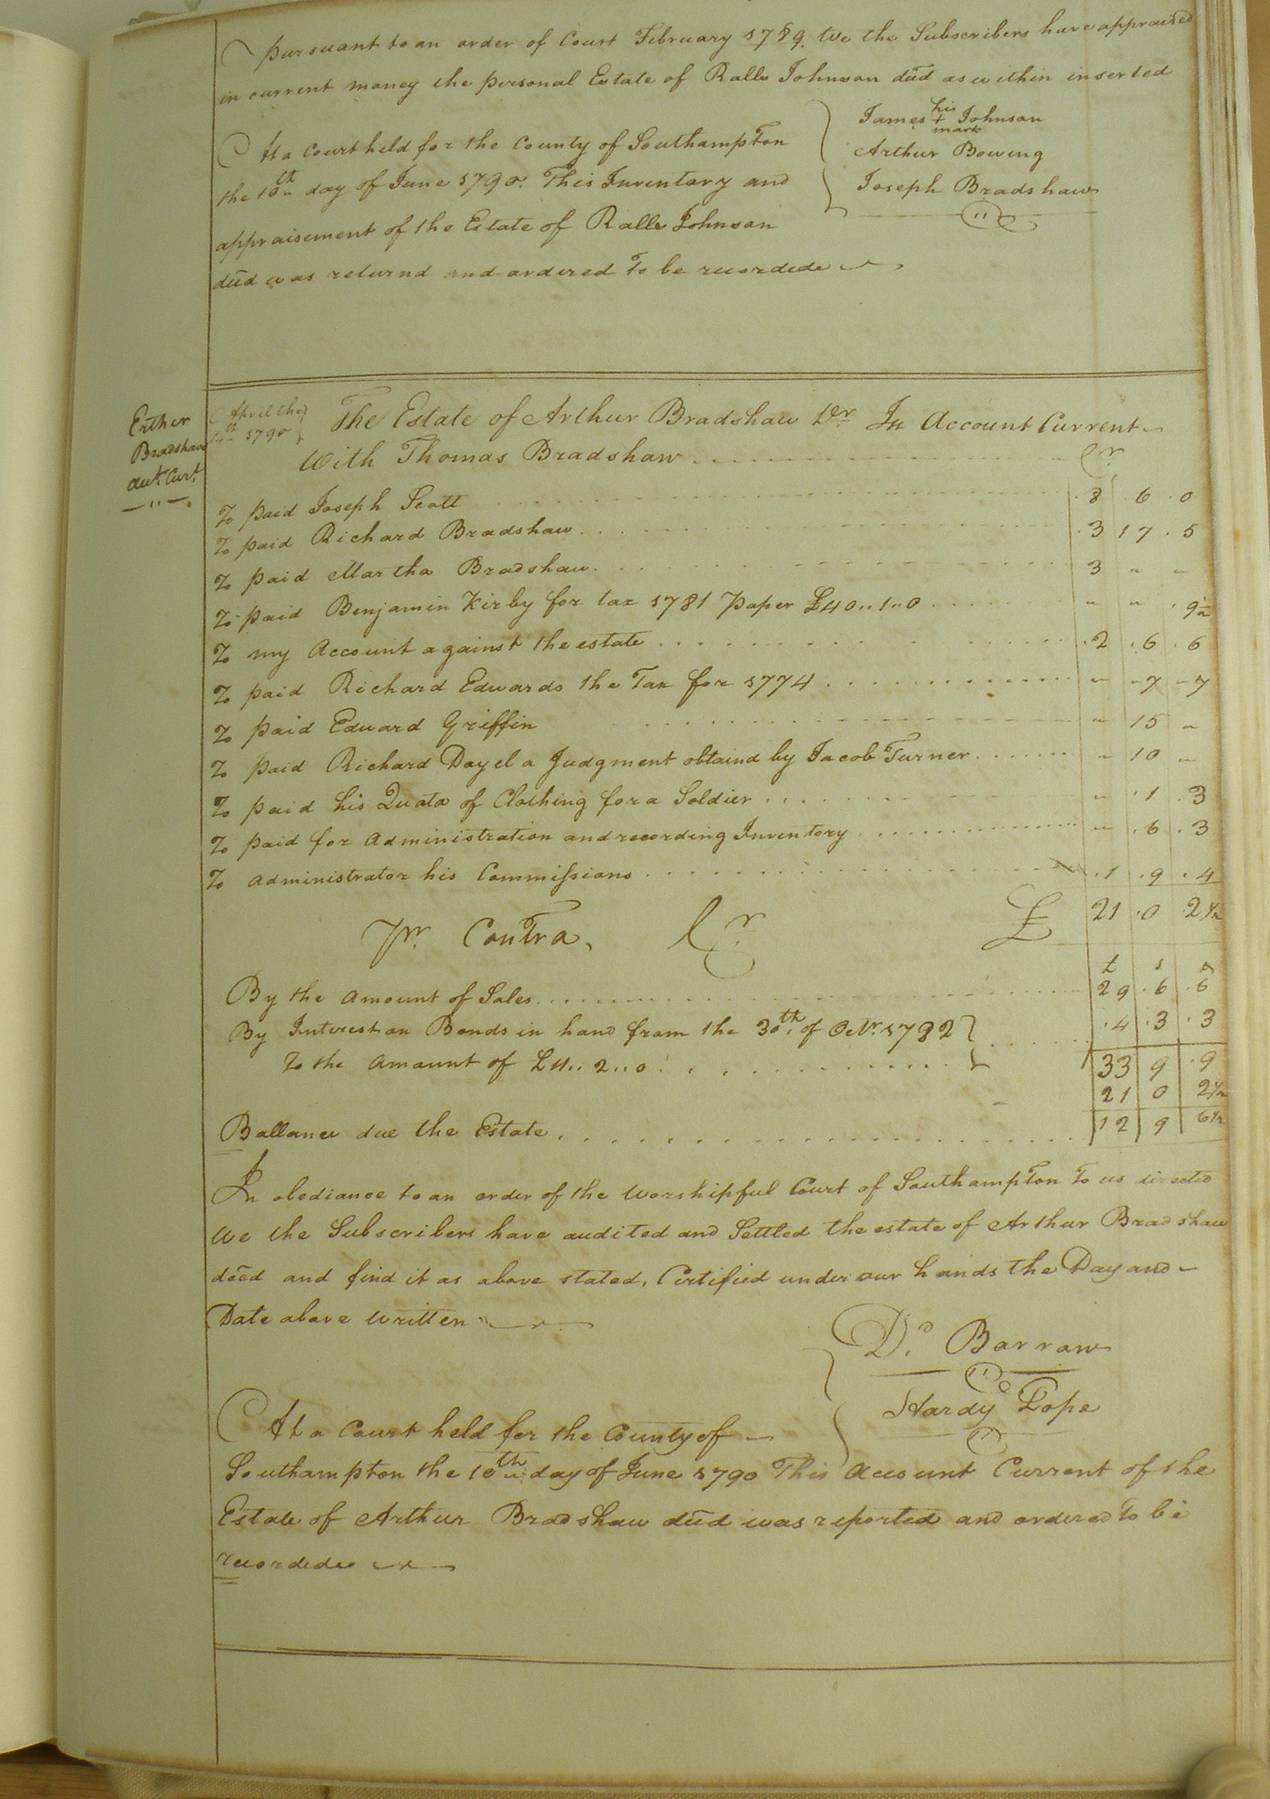 Pursuant to an order of Court February 1789. We the Subscribers have appraised
in current money the personal Estate of Ralls Johnson decd as within inserted
James his + mark Johnson
Arthur Bowing
Joseph Bradshaw
At a Court held for the County of Southampton
the 10th day of June 1790. This Inventory and
appraisement of the Estate of Ralls Johnson
decd was returnd and ordered To be recordede
Bradshaw
acct. Curt.
April the
14th 1790
The Estate of Arthur Bradshaw Dr. In Account Current
With Thomas Bradshaw Cr.
To paid Joseph Scott 8 6 0
To paid Richard Bradshaw 3 17 5
To paid Martha Bradshaw 3 " "
To paid Benjamin Kirby for tax 1781 paper £40..1..0 " " 9½
To my Account against the estate 2 6 6
To paid Richard Edwards the Tax for 1774 " 7 7
To paid Edward Griffin " 15 "
To paid Richard Dayel a Judgment obtaind by Jacob Turner " 10 "
To paid his Quata of Clothing for a Soldier " 1 3
To paid for administration and recording Inventory " 6 3
To administrator his Commissions 1 9 4
Pr. Contra, Cr. £ 21 0 2½
£ s d
By the amount of Sales 29 6 6
By Interest on Bonds in hand from the 30th of Octr. 1782 4 3 3
To the amount of £11..2..0 33 9 9
21 0 2½
Ballance due the Estate 12 9 6½
In obediance to an order of the Worshipful Court of Southampton To us directed
We the Subscribers have audited and Settled the estate of Arthur Bradshaw
deced and find it as above stated, Certified under our hands the Day and
Date above written
D. Barrow
Hardy Pope
At a Court held for the County of
Southampton the 10th day of June 1790 This Account Current of the
Estate of Arthur Bradshaw decd was reported and ordered To be
recordede